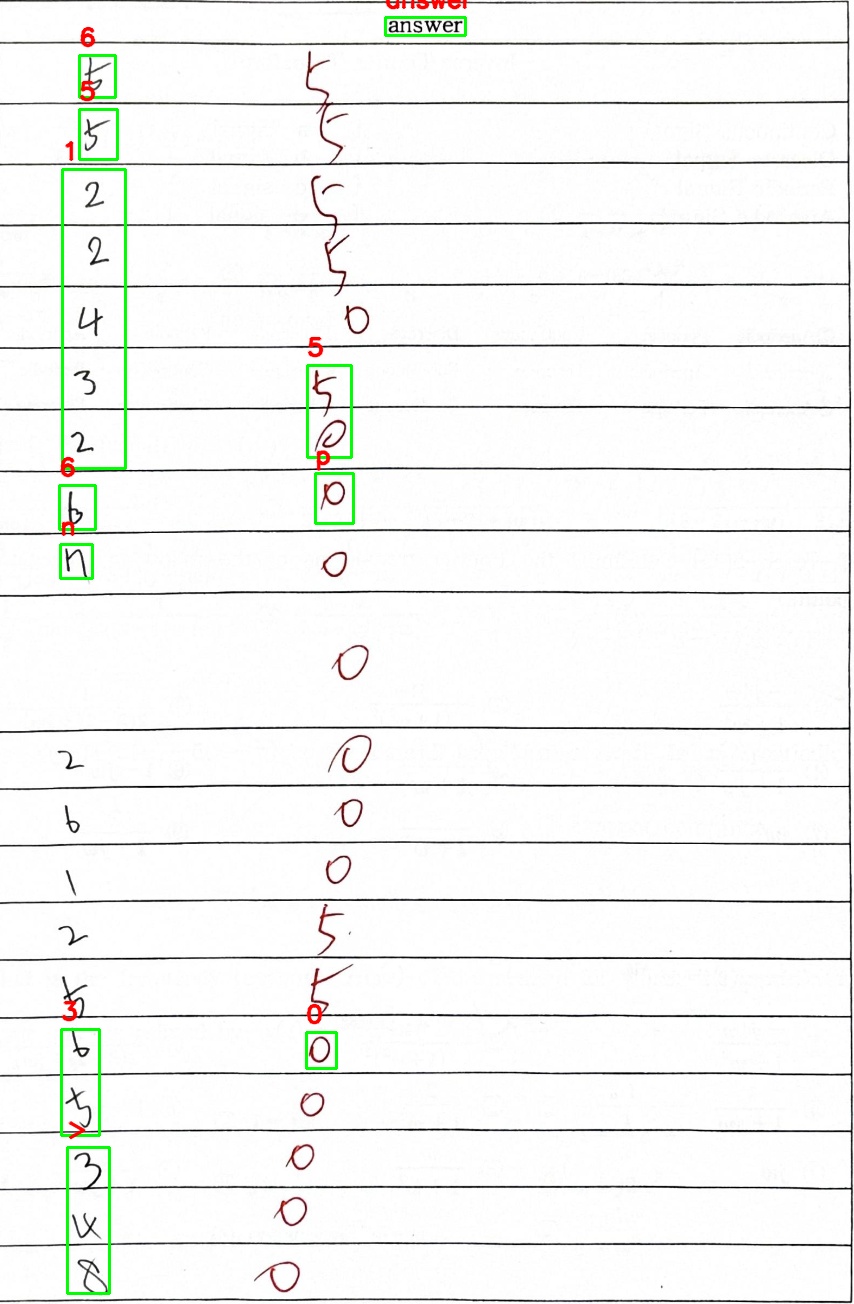 answer
answer
6
5 5
5
5 5
1
2 5
2 5
4 0
5
3 5
2 0
6 p
6 0
n
n 0
0
2 0
6 0
1 0
2 5
5 5
3 0
6 0
5 0
>
3 0
4 0
8 0